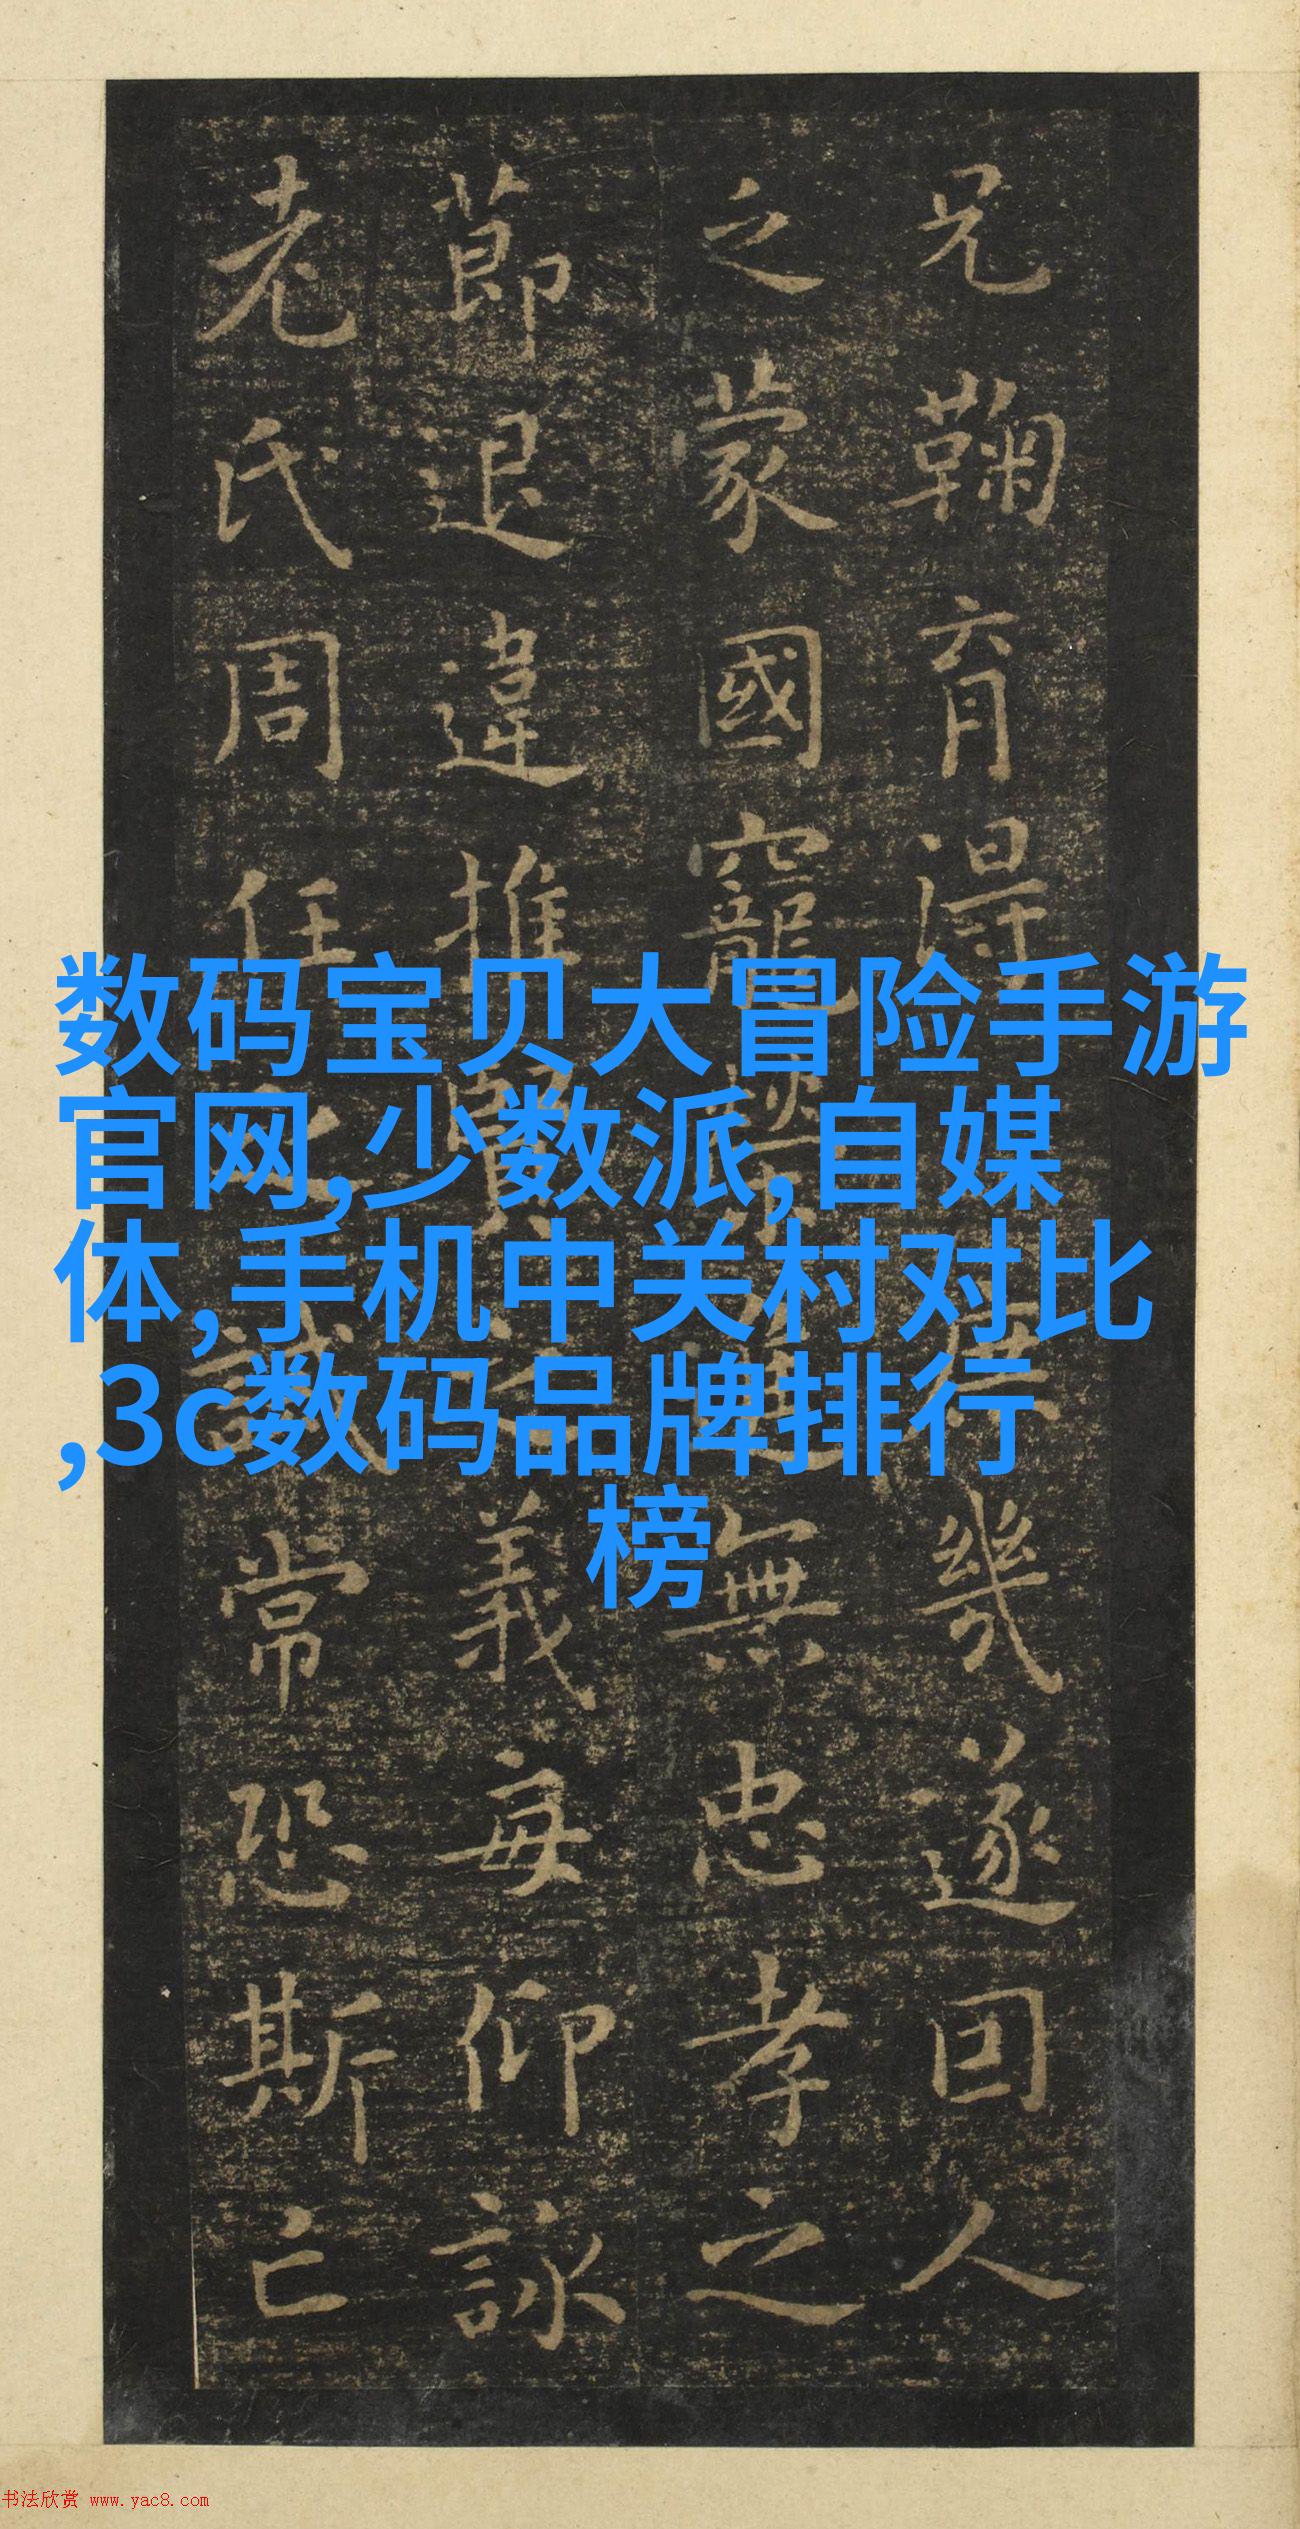 兄鞠育得
幾遂回人
之蒙國寵
無忠孝之
節退違推賢之義每仰詠
老氏周任之誡常恐斯亡
数码宝贝大冒险手游
官网,少数派,自媒
体,手机中关村对比
,3c数码品牌排行
榜
书法欣赏 www.yac8.com